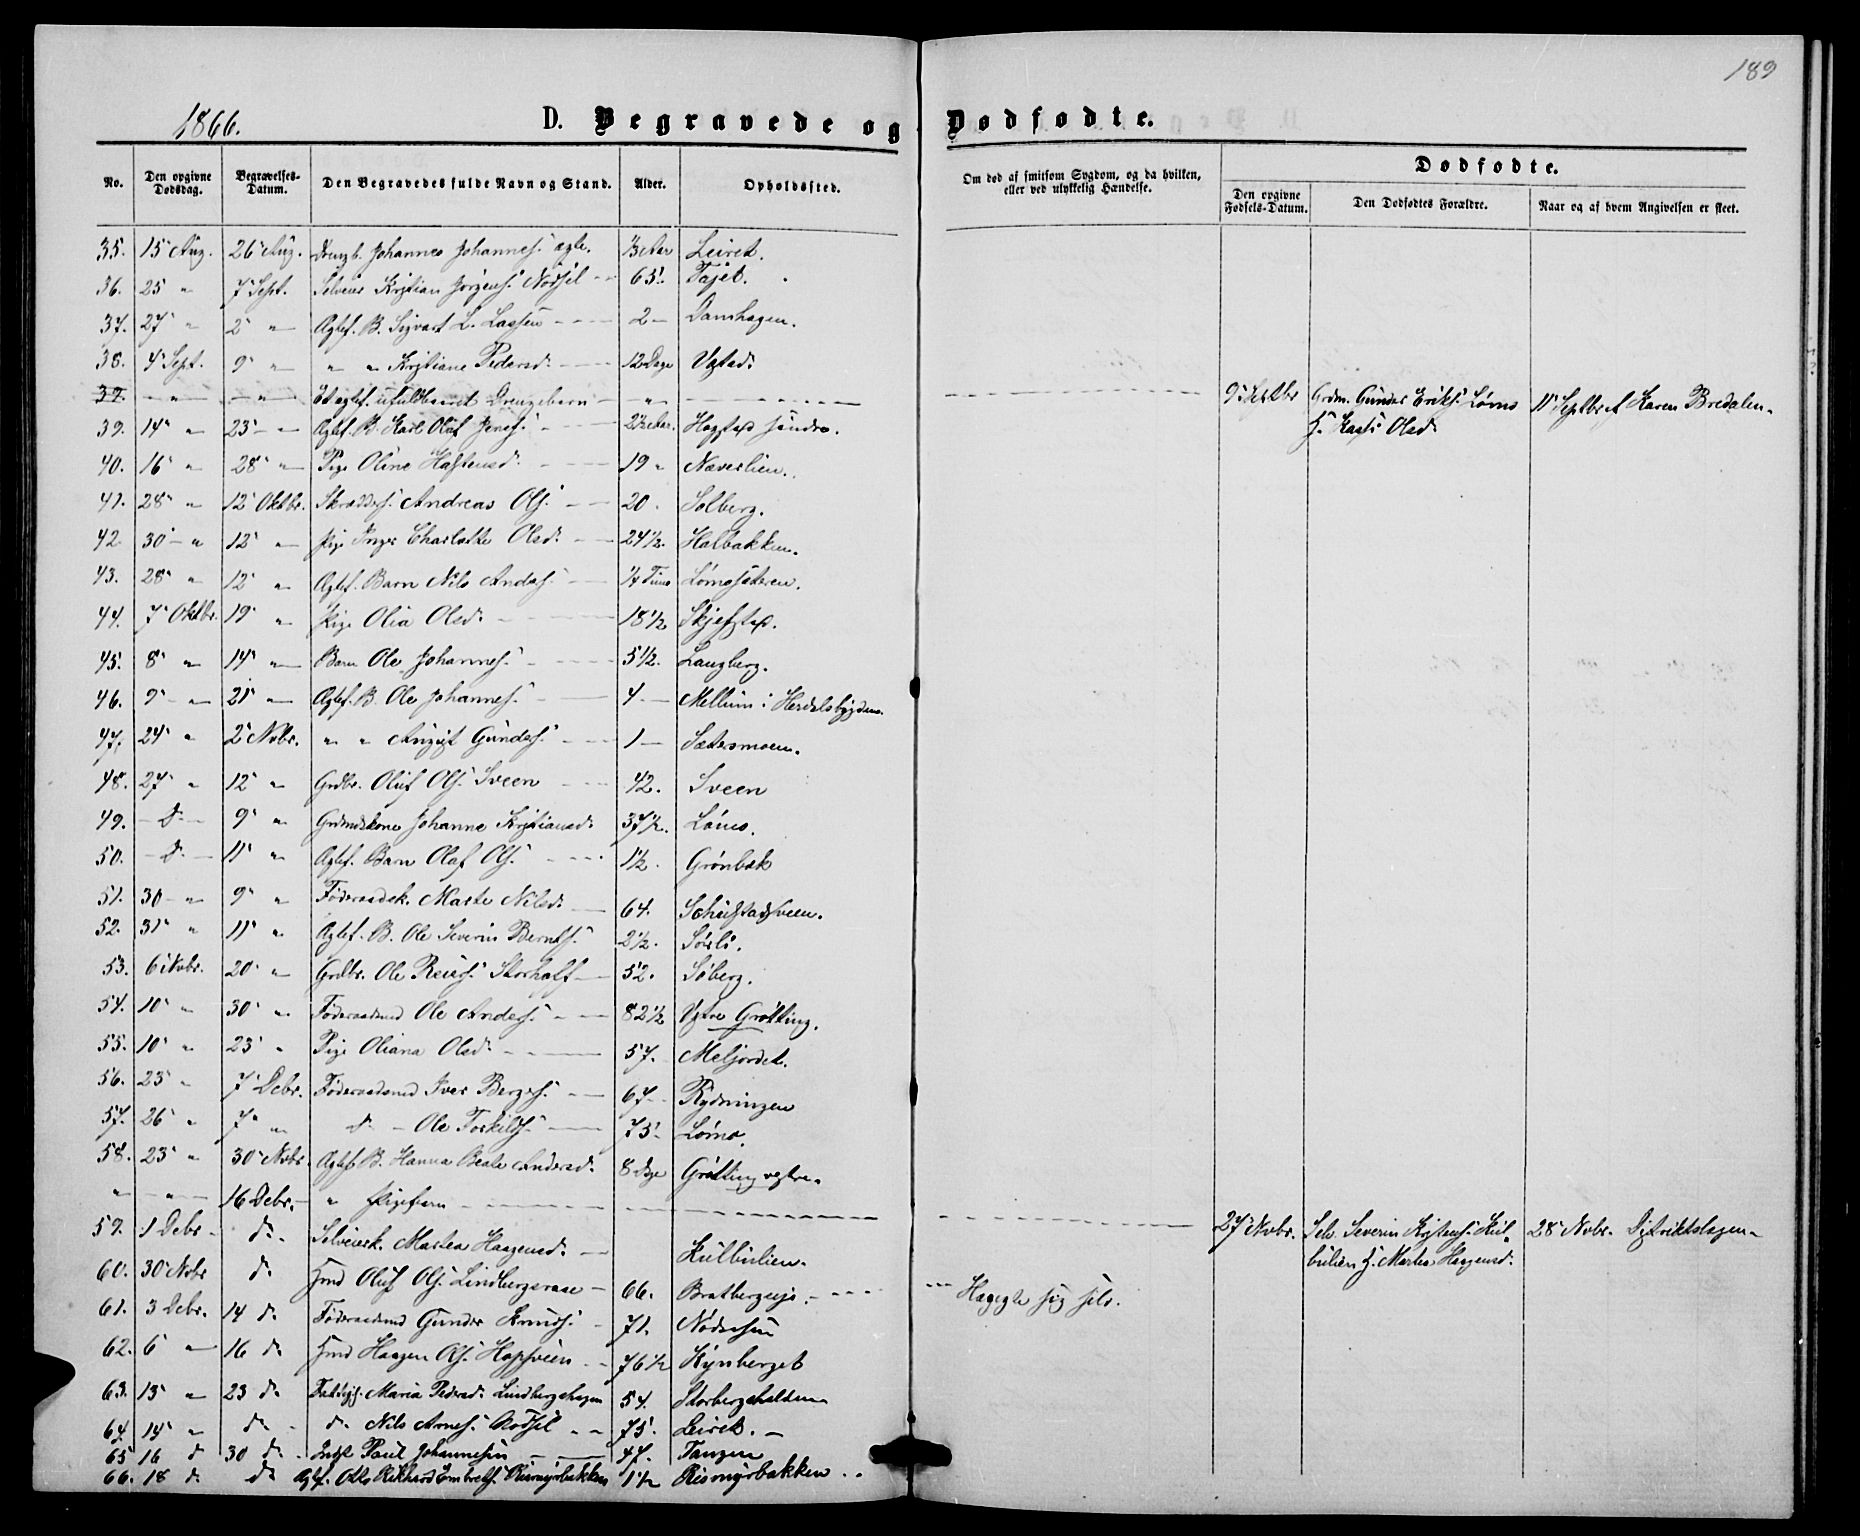 189
1866.
D. Begravede og Dødfødte.
No.
Den opgivne Dødsdag.
Begravelses-Datum.
Den Begravedes fulde Navn og Stand.
Alder.
Opholdssted.
Om død af smitsom Sygdom, og da hvilken, eller ved ulykkelig Hændelse.
Dødfødte.
Den opgivne Fødsels-Datum.
Den Dødfødtes Forældre.
Naar og af hvem Angivelsen er skeet.
35. 15 Aug. 26 Aug. Drengb. Johannes Johannes. Leiret.
36. 25 " 7 Sept. Selveier Kristian Jørgens. Nødsil 65. Fajet.
37. 27 " 2 " Ægtef. B. Sigvart L. Lassen 2 Damhagen.
38. 4 Sept. 9 " " " Kristiane Pedersd. 12 Dage Ugstad.
39. " " Et ægtef. ufuldbaaret Drengebarn " 9 Septbr Grdm. Gunder Eriks. Lømo 11 Septbr af Karen Bredalen.
H. Kasti Olsd.
39. 14 " 23 " Ægtef. B. Karl Oluf Jens. 2½ Aar. Hogstad søndre.
40. 16 " 28 " Pige Oline Halstensd. 19 " Næverlien.
41. 28 " 12 Oktbr. Andreas Ols. 20. Solberg.
42. 30 " 12 " Pige Inger Charlotte Olsd. 24½. Halbakken.
43. 28 " 12 " Ægtef. Barn Nils Anders. ¼ Time Lømosæteren.
44. 7 Oktbr. 19 " Pige Olia Olsd. 18½ Skjefstad.
45. 8 " 14 " Barn Ole Johannes. 5½. Langberg.
46. 9 " 21 " Ægtef. B. Ole Johannes. 4 Mellum i Herdalsbygden.
47. 24 " 2 Novbr. " " August Gunders. 1 Sætermoen.
48. 27 " 12 " Grdbr. Oluf Ols. Sveen 42. Sveen
49. D. 9 " Grdmdskone Johanne Kristiansd. 37½. Lømo.
50. D. 11 " Ægtef. Barn Olaf Ols. 1½. Grønbæk
51. 30 " 9 " Føderaadsk. Marte Nilsd. 64. Schulstadsveen.
52. 31 " 11 " Ægtef. B. Ole Severin Bernts. 2½. Sørli.
53. 6 Novbr. 20 " Grdbr. Ole Reiers. Storhalt 52. Søberg.
54. 10 " 30 " Føderaadsmd Ole Anders. 82½ Vestre Grøtting.
55. 10 " 23 " Pige Oliana Olsd. 57. Meljordet.
56. 23 " 7 Debr. Føderaadsmd Iver Berges. 67 Rydningen
57. 26 " 7 " d. Ole Torkilds. 75. Lømo.
58. 23 " 30 Novbr. Ægtef. B. Hanna Beate Andersd. 8 Dage Grøtting vestre.
" " 16 Debr. " Pigebarn 27 Novbr. Selv. Severin Kristens. Kulbulien H. Martea Haagensd. 28 Novbr. Distriktslægen.
59. 1 Debr. d. Selveierk. Martea Haagensd. Kulbulien.
60. 30 Novbr d. Hmd Oluf Ols. Lindbergsrase 66. Bratbergseje. Hægte sig selv.
61. 3 Debr. 14 d. Føderaadsmd Gunder Knuds. 71. Nødaasen
62. 6 " 16 d. Hmd Haagen Ols. Hogsveen 76½ Kynberget
63. 13 " 23 d. Fattigl. Maria Pedersd. Lindbergshagen 54. Storbergshalden
64. 14 " d. d. Nils Arnes. Nødsil 75. Leiret.
65 16 d 30 d. Inds. Paul Johannesen 47. Tangen
66. 18 d. d. Ægtf. Otto Rikhard Embrets. Rismyrbakken 1½ Rismyrbakken